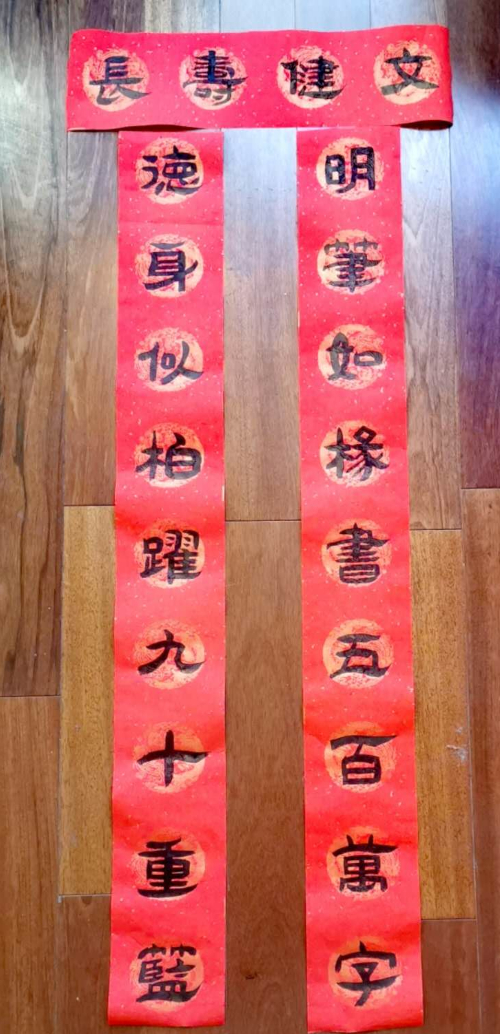 文健壽長
明筆如椽書五百萬字
德身似柏躍九十重藍